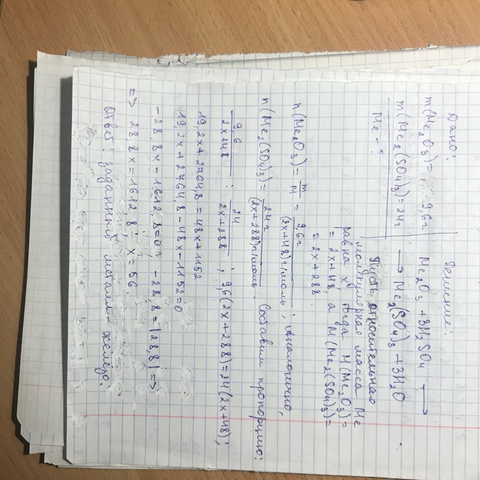 Дано:
m(Me₂O₃) = 9,6г
m(Me₂(SO₄)₃) = 24г
Me - ?
Решение:
Me₂O₃ + 3H₂SO₄ →
→ Me₂(SO₄)₃ + 3H₂O
Пусть относительная
молекулярная масса Me
равна x, тогда M(Me₂O₃) =
= 2x+48 а M(Me₂(SO₄)₃) =
= 2x+288
n(Me₂O₃) = m/M = 9,6г/(2x+48)г/моль ; аналогично,
n(Me₂(SO₄)₃) = 24г/(2x+288)г/моль. Составим пропорцию:
9,6/2x+48 : 24/2x+288 ; 9,6(2x+288)=24(2x+48);
19,2x+2764,8=48x+1152
19,2x+2764,8-48x-1152=0
-28,8x-1612,8=0; -28,8=|28,8| =>
=> 28,8x=1612,8; x=56.
Ответ: заданный металл - железо.